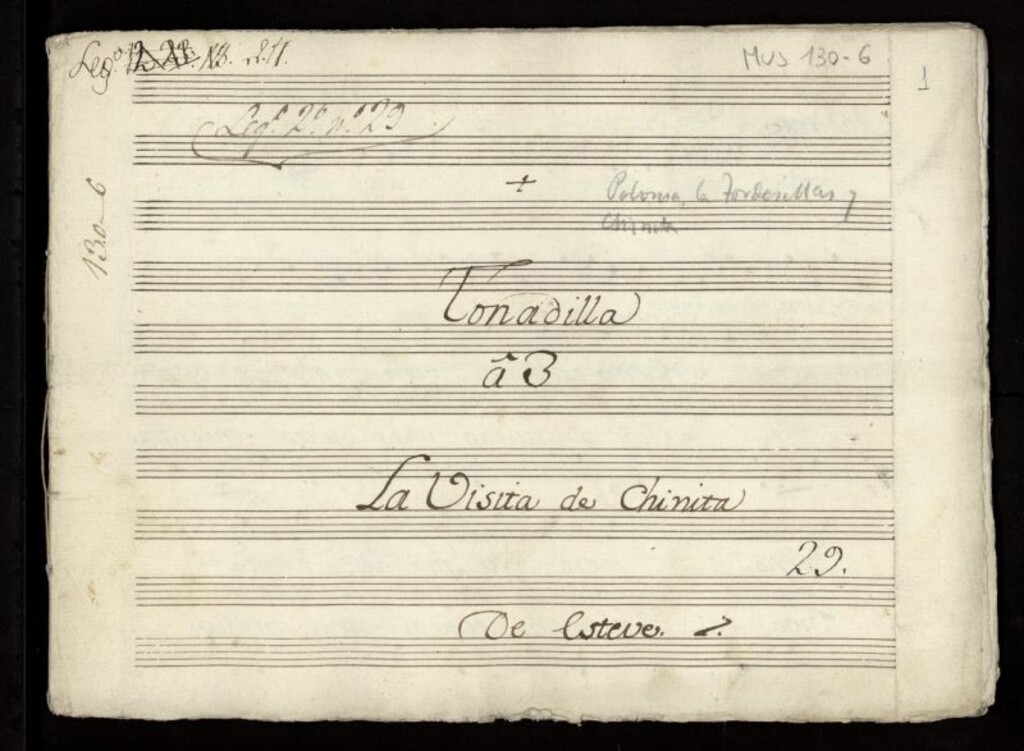 Leg.º 13. n.11.
MUS 130-6
1
Leg.º 2.º n.º 29
130-6
+
Polonia, la Tordesillas y
Chinita
Tonadilla
â 3
La Visita de Chinita
29.
De Esteve.